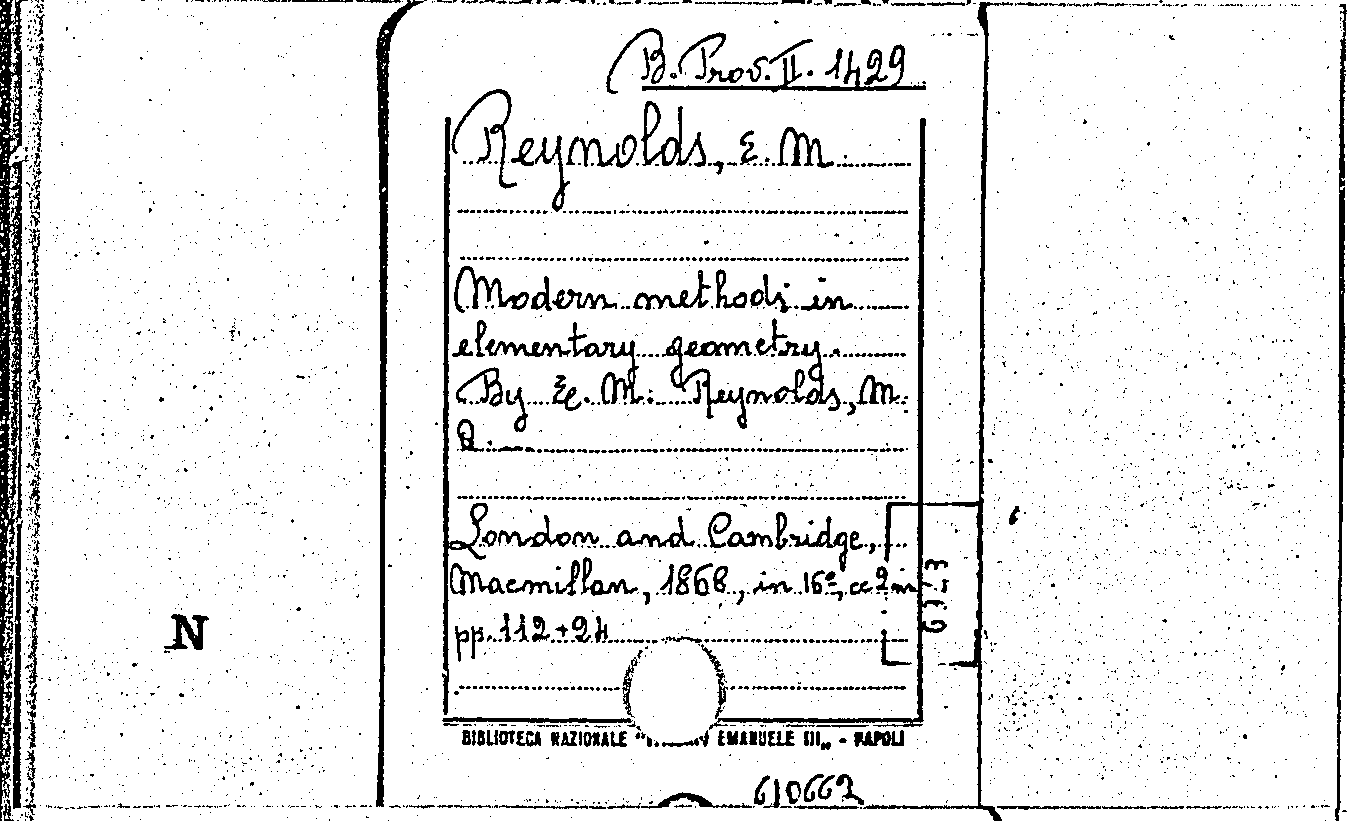 B. Prov. II. 1429
Reynolds, E. M.
Modern methods in
elementary geometry.
By E. M. Reynolds, M.
A.
London and Cambridge,
Macmillan, 1868, in 16º, cc 2 in
pp. 112+24
N
BIBLIOTECA NAZIONALE " EMANUELE III„ - NAPOLI
610662